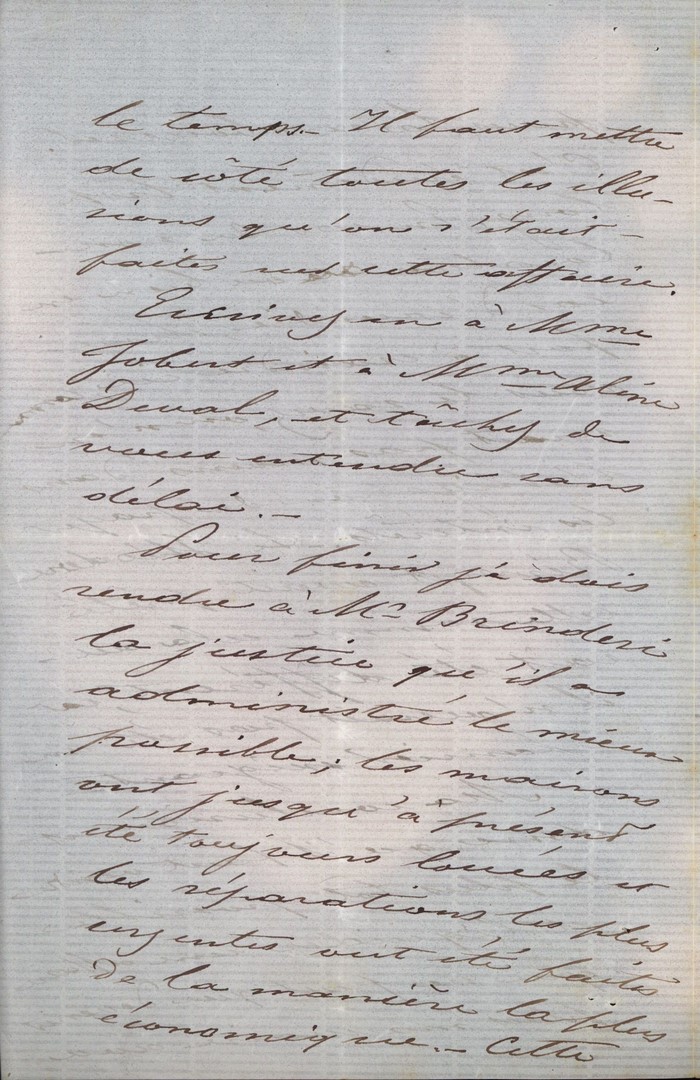 le temps_ Il faut mettre
de côté toutes les illu-
sions qu'on s'était-
faites sur cette affaire.
Ecrivez en à Mme
Jobert et à Mme Aline
Duval, et tâchez de
vous entendre sans
délai._
Pour finir je dois
rendre à Mr Brinderi
la justice qu'il a
administré le mieux
possible; les maisons
ont jusqu'à présent
été toujours louées et
les réparations les plus
urgentes ont été faites
de la manière la plus
économique._ Cette